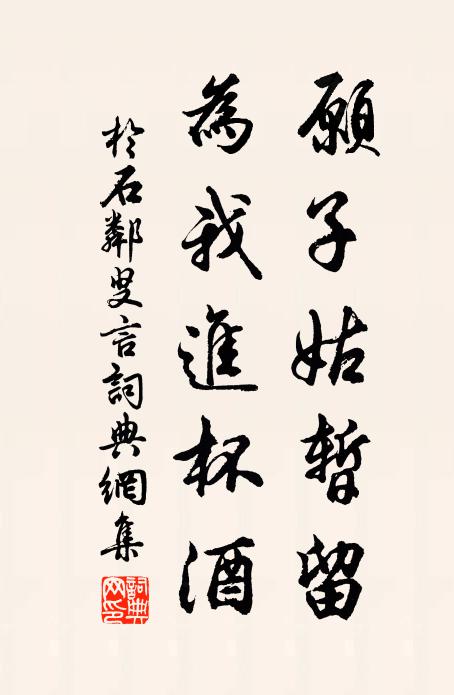 願子姑暫留
為我進杯酒
於石鄰叟言詞典網集
詞典網印